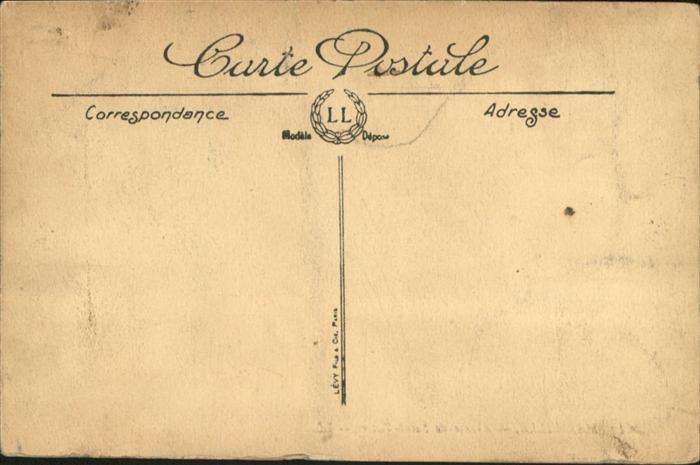 Carte Postale
Correspondance
LL
Adresse
Modèle Déposé
LÉVY Fils & Cie, Paris